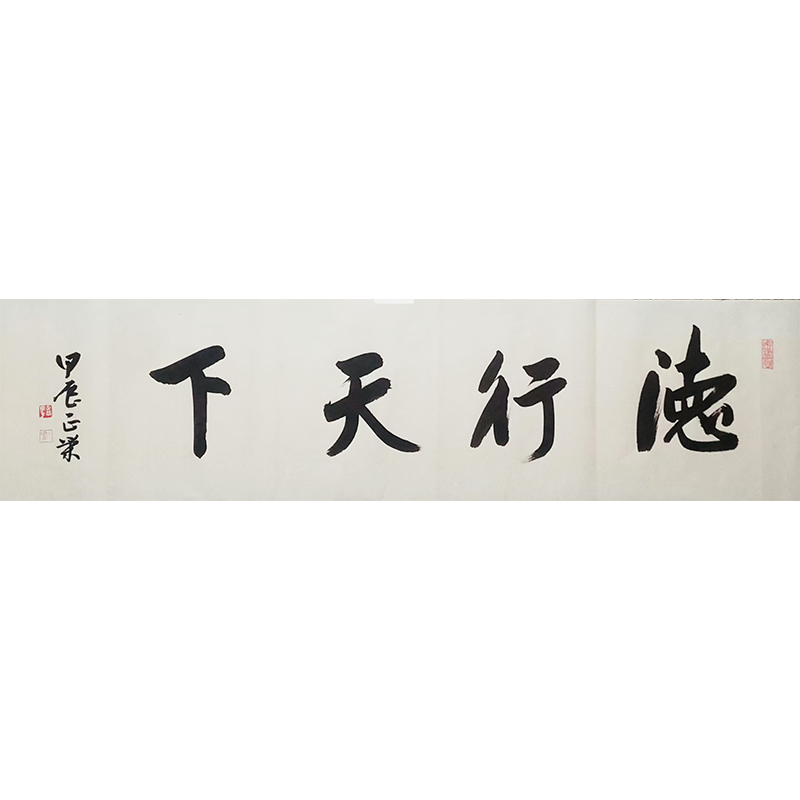 德行天下
甲辰正荣